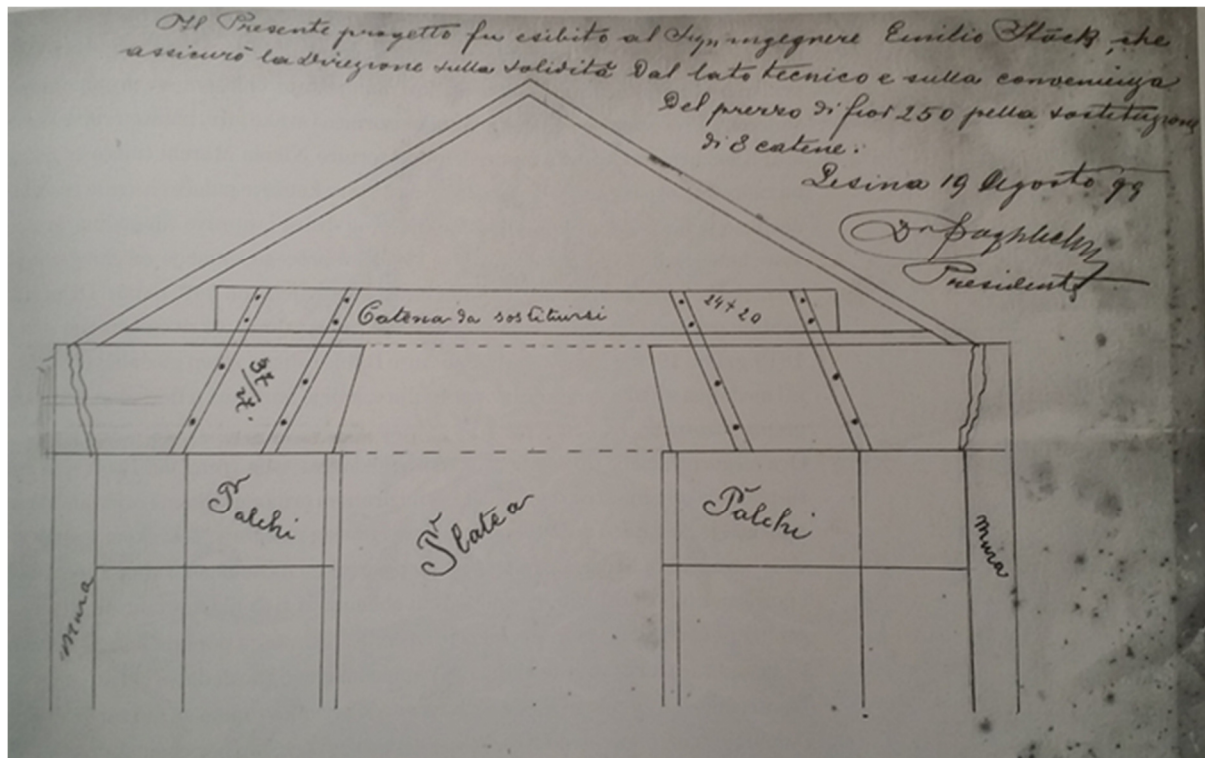 Il Presente progetto fu esibito al Sign ingegnere Emilio Stöck, che
assicurò la Direzione sulla solidità Dal lato tecnico e sulla convenienza
Del prezzo di fior 250 pella sostituzione
di 8 catene.
Lesina 19 Agosto 99
Dr
Presidente
Catena da sostituirsi
24+20
37
27.
Palchi
Platea
Palchi
Mura
Mura